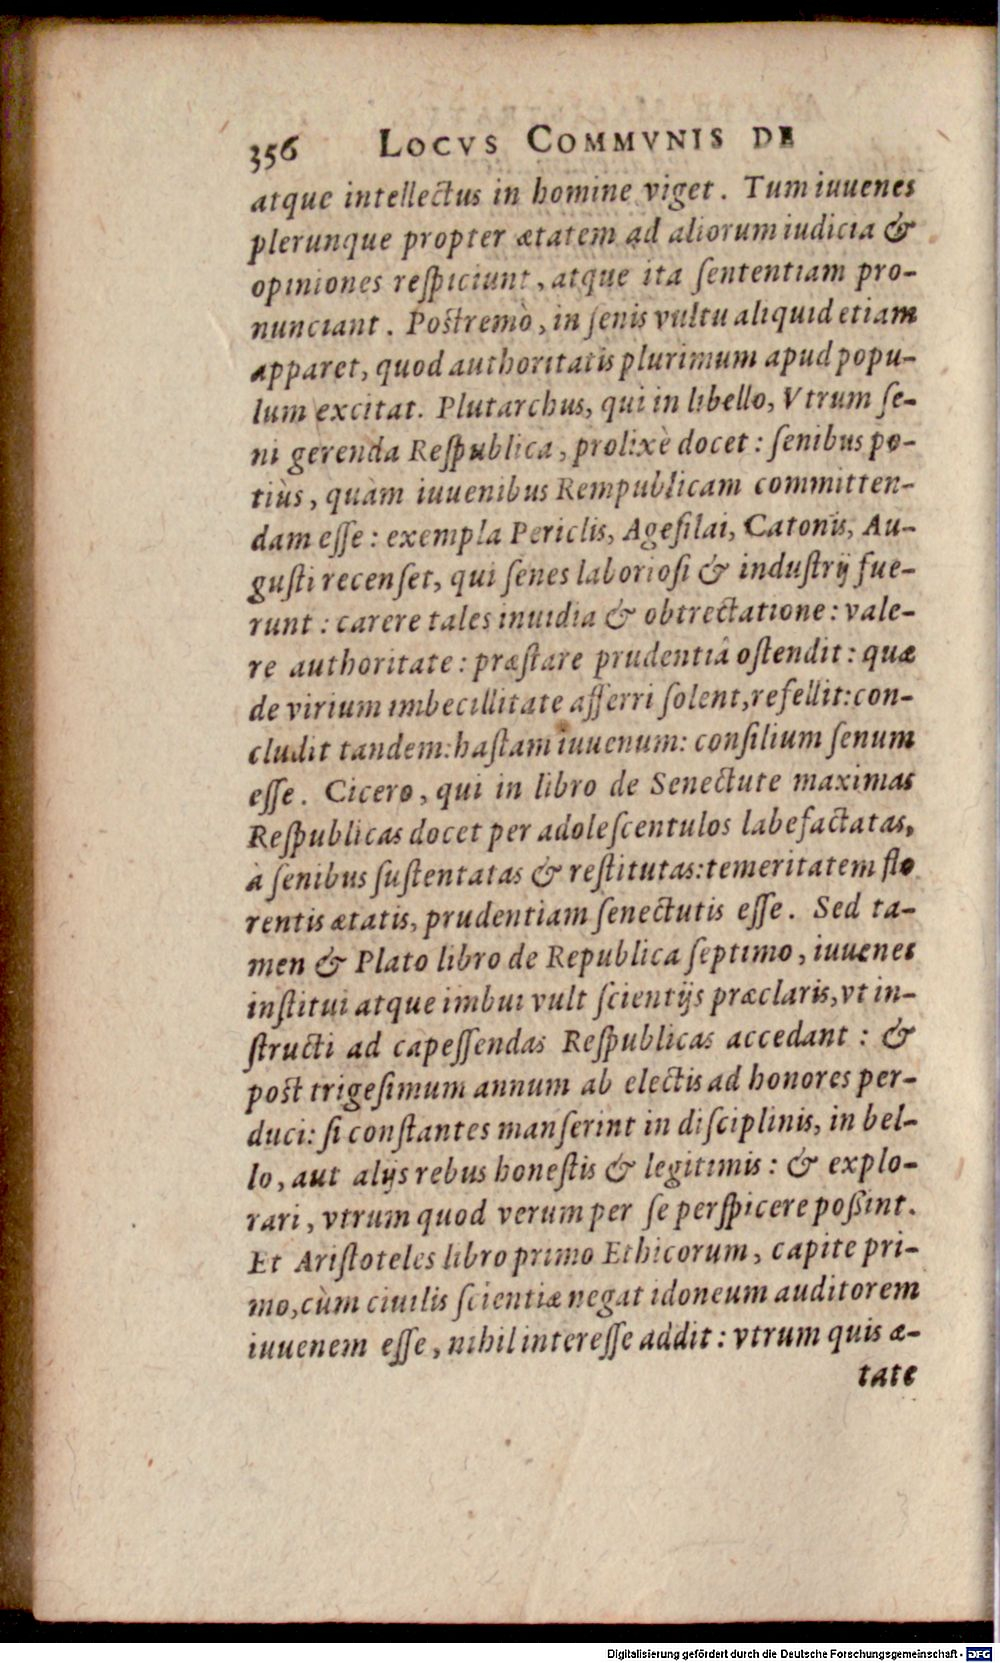 356 LOCVS COMMVNIS DE
atque intellectus in homine viget. Tum iuuenes
plerunque propter ætatem ad aliorum iudicia &
opiniones reſpiciunt, atque ita ſententiam pro-
nunciant. Poſtremò, in ſenis vultu aliquid etiam
apparet, quod authoritatis plurimum apud popu-
lum excitat. Plutarchus, qui in libello, Vtrum ſe-
ni gerenda Reſpublica, prolixè docet: ſenibus po-
tiùs, quàm iuuenibus Rempublicam committen-
dam eſſe: exempla Periclis, Ageſilai, Catonis, Au-
guſti recenſet, qui ſenes laborioſi & induſtrij fue-
runt: carere tales inuidia & obtrectatione: vale-
re authoritate: præſtare prudentiâ oſtendit: quæ
de virium imbecillitate aſſerri ſolent, refellit: con-
cludit tandem: haſtam iuuenum: conſilium ſenum
eſſe. Cicero, qui in libro de Senectute maximas
Reſpublicas docet per adoleſcentulos labefactatas,
à ſenibus ſuſtentatas & reſtitutas: temeritatem flo
rentis ætatis, prudentiam ſenectutis eſſe. Sed ta-
men & Plato libro de Republica ſeptimo, iuuenes
inſtitui atque imbui vult ſcientijs præclaris, vt in-
ſtructi ad capeſſendas Reſpublicas accedant: &
poſt trigeſimum annum ab electis ad honores per-
duci: ſi conſtantes manſerint in diſciplinis, in bel-
lo, aut alijs rebus honeſtis & legitimis: & explo-
rari, vtrum quod verum per ſe perſpicere poßint.
Et Ariſtoteles libro primo Ethicorum, capite pri-
mo, cùm ciuilis ſcientiæ negat idoneum auditorem
iuuenem eſſe, nihil intereſſe addit: vtrum quis æ-
tate
Digitalisierung gefördert durch die Deutsche Forschungsgemeinschaft - DFG